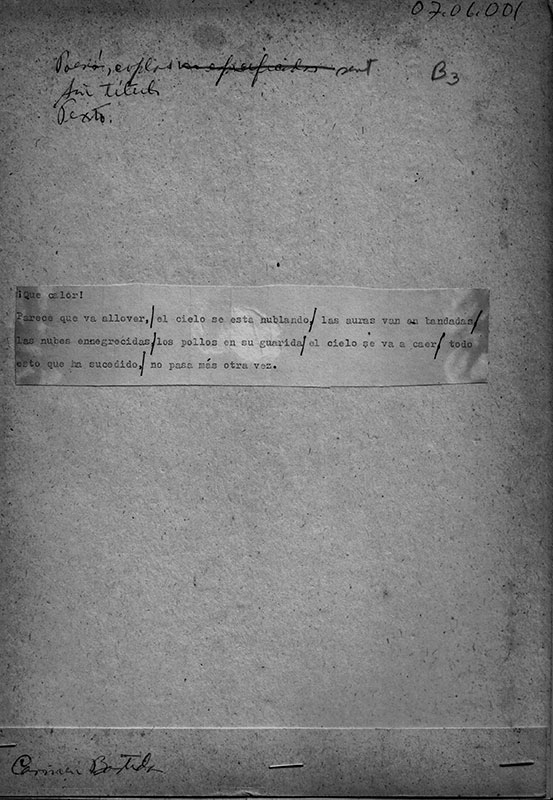 07.06.001
B3
Sin título
Texto.
¡Que calor!
Parece que va allover,/ el cielo se esta nublando/ las auras van en bandadas/
las nubes ennegrecidas/ los pollos en su guarida/ el cielo se va a caer/ todo
esto que ha sucedido,/ no pasa más otra vez.
Carmen Bastida